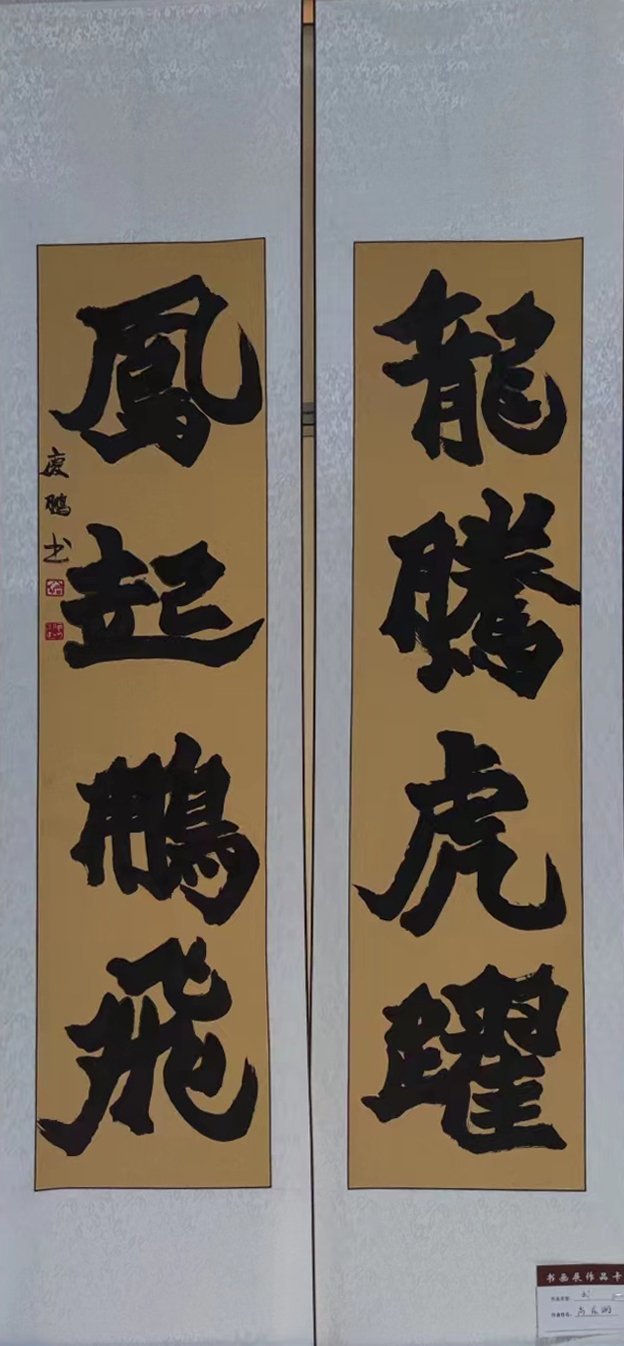 龍騰虎躍
鳳起鵬飛
慶鵬书
书画展作品卡